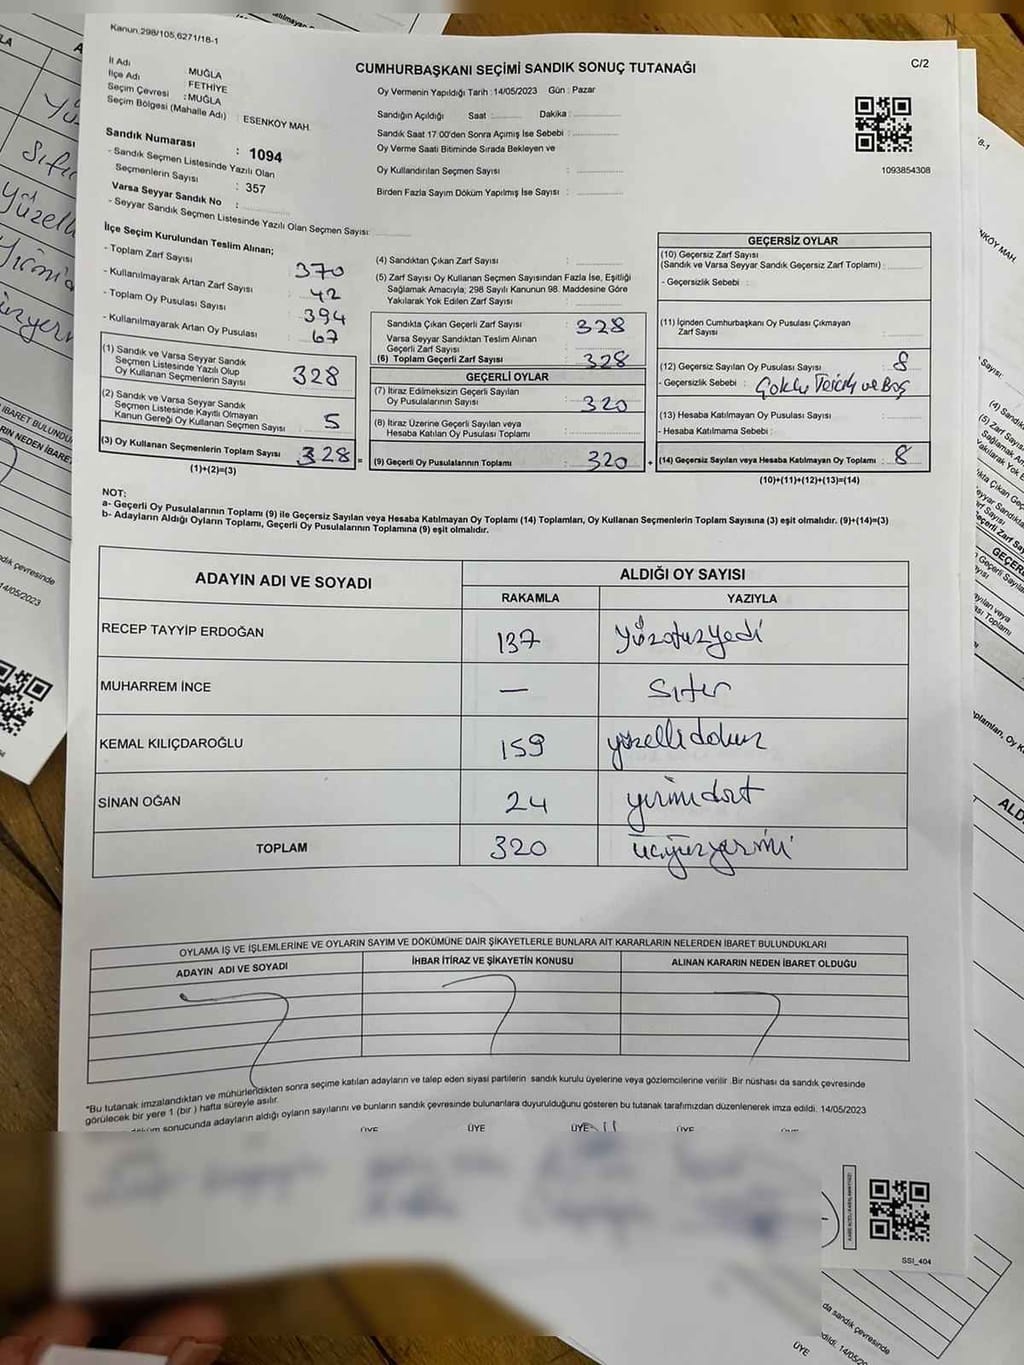 Kanun.298/105,6271/18-1
C/2
CUMHURBAŞKANI SEÇİMİ SANDIK SONUÇ TUTANAĞI
İl Adı MUĞLA
İlçe Adı FETHİYE
Seçim Çevresi :MUĞLA
Seçim Bölgesi (Mahalle Adı) : ESENKÖY MAH.
Sandık Numarası : 1094
- Sandık Seçmen Listesinde Yazılı Olan
Seçmenlerin Sayısı : 357
Varsa Seyyar Sandık No :
- Seyyar Sandık Seçmen Listesinde Yazılı Olan Seçmen Sayısı:
Oy Vermenin Yapıldığı Tarih :14/05/2023 Gün : Pazar
Sandığın Açıldığı Saat : Dakika :
Sandık Saat 17:00'den Sonra Açımış İse Sebebi :
Oy Verme Saati Bitiminde Sırada Bekleyen ve
Oy Kullandırılan Seçmen Sayısı :
Birden Fazla Sayım Döküm Yapılmış İse Sayısı :
1093854308
İlçe Seçim Kurulundan Teslim Alınan;
- Toplam Zarf Sayısı : 370
- Kullanılmayarak Artan Zarf Sayısı : 42
- Toplam Oy Pusulası Sayısı : 394
- Kullanılmayarak Artan Oy Pusulası : 67
(1) Sandık ve Varsa Seyyar Sandık
Seçmen Listesinde Yazılı Olup
Oy Kullanan Seçmenlerin Sayısı : 328
(2) Sandık ve Varsa Seyyar Sandık
Seçmen Listesinde Kayıtlı Olmayan
Kanun Gereği Oy Kullanan Seçmen Sayısı : 5
(3) Oy Kullanan Seçmenlerin Toplam Sayısı : 328 =
(1)+(2)=(3)
(4) Sandıktan Çıkan Zarf Sayısı :
(5) Zarf Sayısı Oy Kullanan Seçmen Sayısından Fazla İse, Eşitliği
Sağlamak Amacıyla; 298 Sayılı Kanunun 98. Maddesine Göre
Yakılarak Yok Edilen Zarf Sayısı :
Sandıkta Çıkan Geçerli Zarf Sayısı : 328
Varsa Seyyar Sandıktan Teslim Alınan
Geçerli Zarf Sayısı :
(6) Toplam Geçerli Zarf Sayısı : 328
GEÇERLİ OYLAR
(7) İtiraz Edilmeksizin Geçerli Sayılan
Oy Pusulalarının Sayısı : 320
(8) İtiraz Üzerine Geçerli Sayılan veya
Hesaba Katılan Oy Pusulası Toplamı :
(9) Geçerli Oy Pusulalarının Toplamı : 320 +
GEÇERSİZ OYLAR
(10) Geçersiz Zarf Sayısı
(Sandık ve Varsa Seyyar Sandık Geçersiz Zarf Toplamı) :
- Geçersizlik Sebebi :
(11) İçinden Cumhurbaşkanı Oy Pusulası Çıkmayan
Zarf Sayısı :
(12) Geçersiz Sayılan Oy Pusulası Sayısı : 8
- Geçersizlik Sebebi : Çoklu Tercih ve Boş
(13) Hesaba Katılmayan Oy Pusulası Sayısı :
- Hesaba Katılmama Sebebi :
(14) Geçersiz Sayılan veya Hesaba Katılmayan Oy Toplamı : 8
(10)+(11)+(12)+(13)=(14)
NOT:
a- Geçerli Oy Pusulalarının Toplamı (9) ile Geçersiz Sayılan veya Hesaba Katılmayan Oy Toplamı (14) Toplamları, Oy Kullanan Seçmenlerin Toplam Sayısına (3) eşit olmalıdır. (9)+(14)=(3)
b- Adayların Aldığı Oyların Toplamı, Geçerli Oy Pusulalarının Toplamına (9) eşit olmalıdır.
ADAYIN ADI VE SOYADI ALDIĞI OY SAYISI
RAKAMLA YAZIYLA
RECEP TAYYİP ERDOĞAN 137 yüzotuzyedi
MUHARREM İNCE — Sıfır
KEMAL KILIÇDAROĞLU 159 yüzellidokuz
SİNAN OĞAN 24 yirmidört
TOPLAM 320 üçyüzyirmi
OYLAMA İŞ VE İŞLEMLERİNE VE OYLARIN SAYIM VE DÖKÜMÜNE DAİR ŞİKAYETLERLE BUNLARA AİT KARARLARIN NELERDEN İBARET BULUNDUKLARI
ADAYIN ADI VE SOYADI İHBAR İTİRAZ VE ŞİKAYETİN KONUSU ALINAN KARARIN NEDEN İBARET OLDUĞU
*Bu tutanak imzalandıktan ve mühürlendikten sonra seçime katılan adayların ve talep eden siyasi partilerin sandık kurulu üyelerine veya gözlemcilerine verilir .Bir nüshası da sandık çevresinde
görülecek bir yere 1 (bir ) hafta süreyle asılır.
sonucunda adayların aldığı oyların sayılarını ve bunların sandık çevresinde bulunanlara duyurulduğunu gösteren bu tutanak tarafımızdan düzenlenerek imza edildi. 14/05/2023
ÜYE ÜYE ÜYE ÜYE
SSI_404
ÜYE